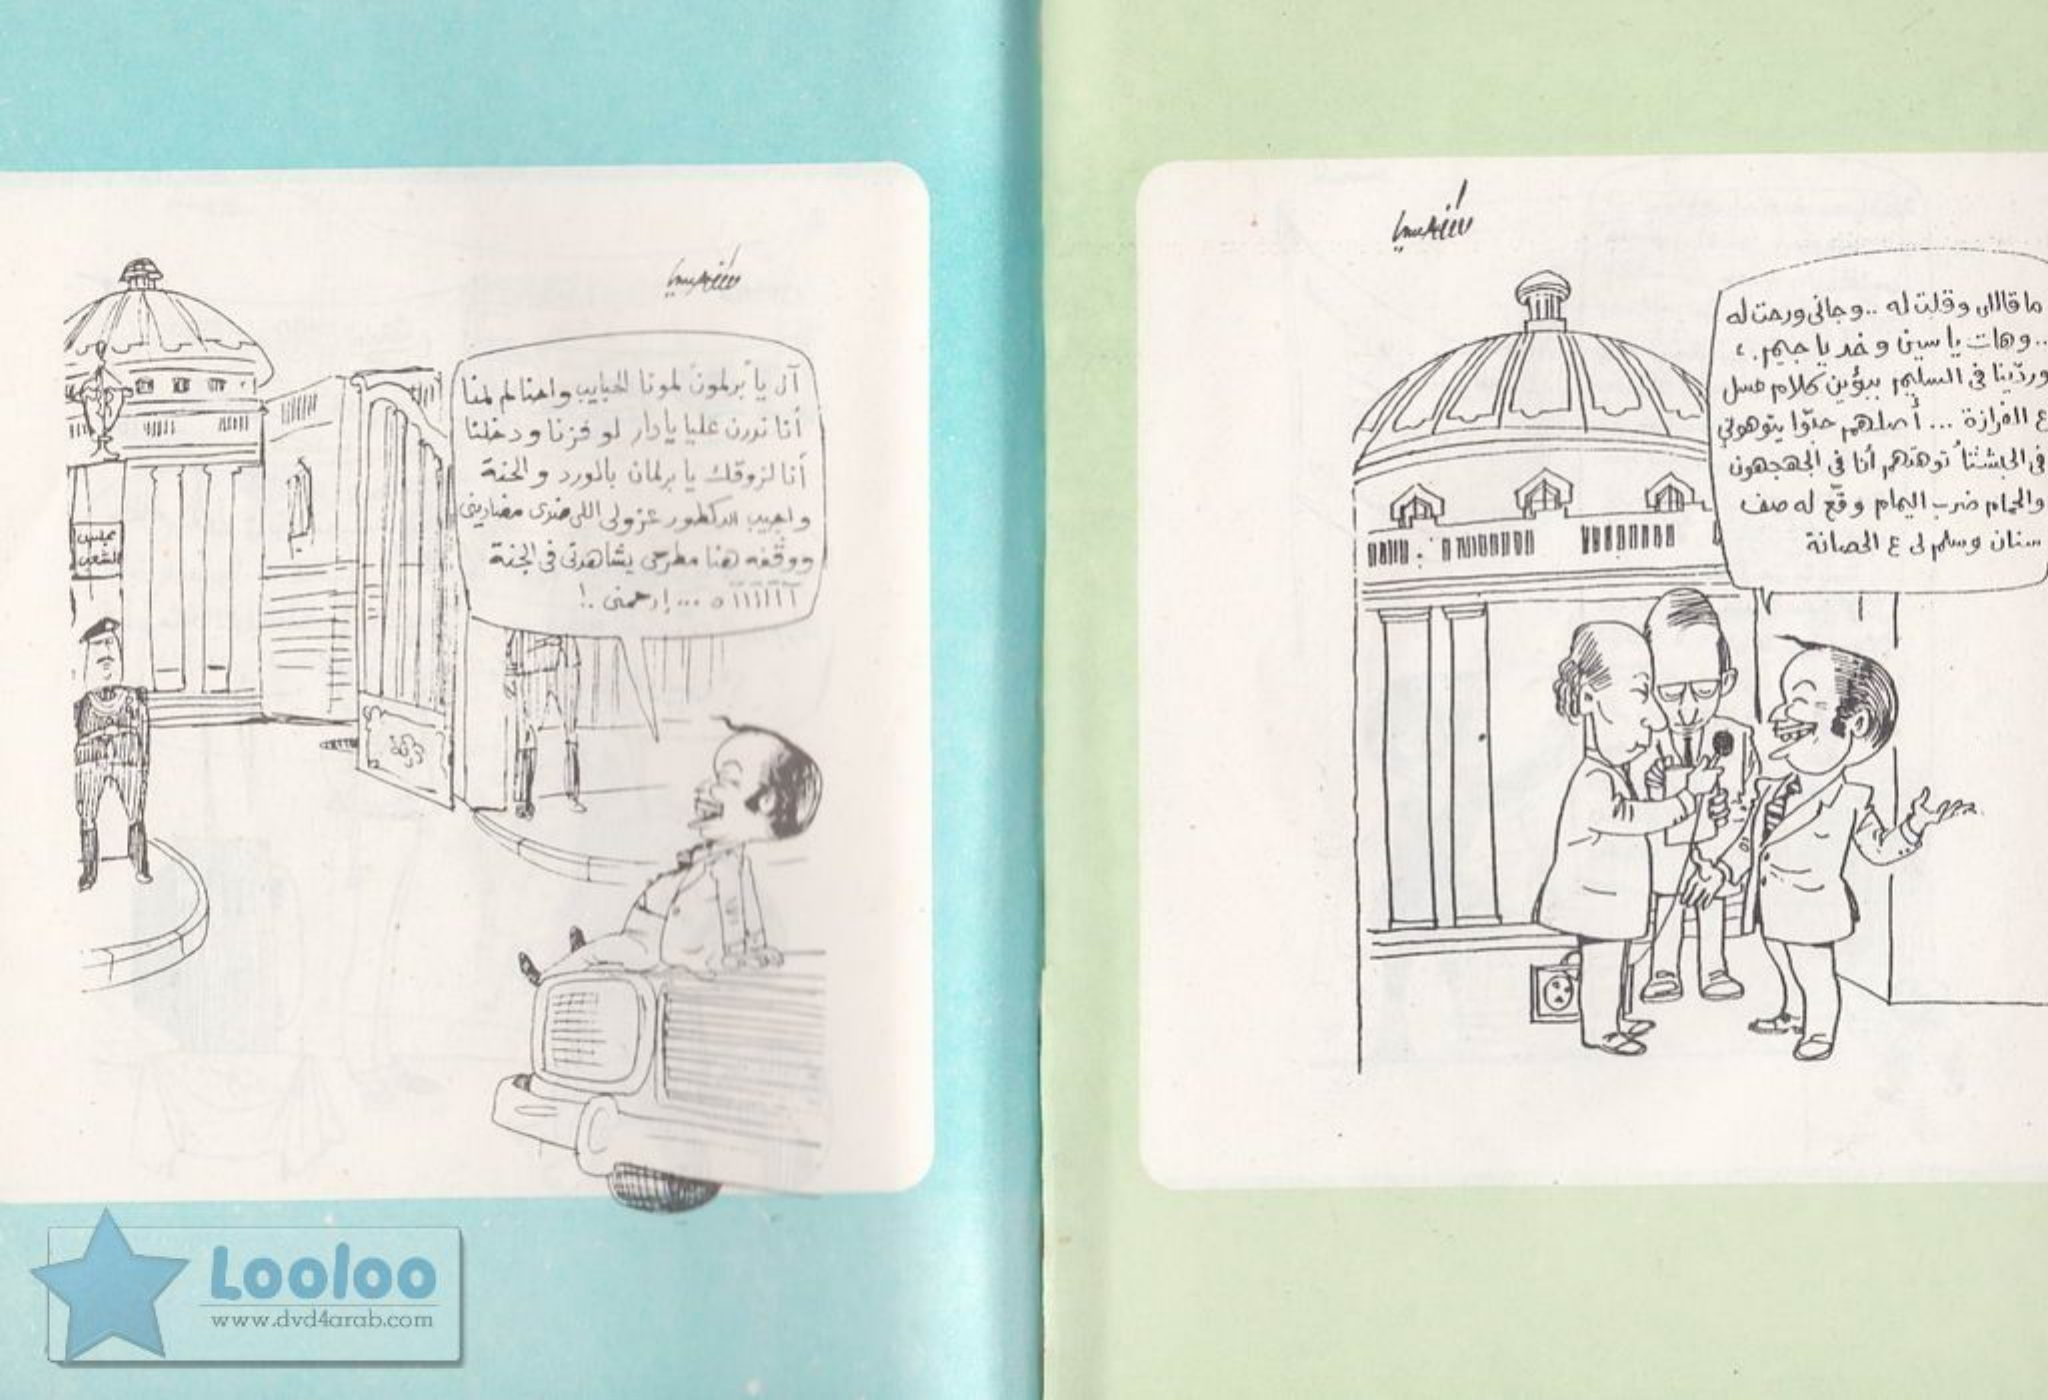 آل يا برلمون لمونا الحبايب واحنا لم لمنا
أنا ندرن عليا يا دار لو فزنا ودخلنا
أنا لزوقك يا برلمان بالورد والحنة
واجيب الدكطور غزولى اللى
ووقفه هنا مطرحى يشاهدنى فى الجنة
آآآآآآآه ... إرحمنى .!
مجلس
الشعب
ما قااال وقلت له .. وجانى ورحت له
.. وهات يا سين وخد يا جيم ..
وردّينا فى السليم بيؤين كلام عسل
ع الفرازة ... أصلهم حبّوا يتوهونى
فى توهتهم أنا فى الجهجهون
والحمام ضرب اليمام وقّع له صف
سنان وسلم لى ع الحصانة
Looloo
www.dvd4arab.com